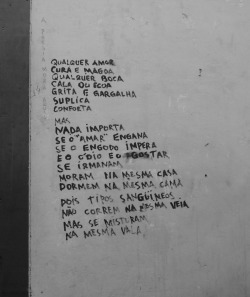 QUALQUER AMOR
CURA E MAGOA
QUALQUER BOCA
CALA OU ECOA
GRITA E GARGALHA
SUPLICA
CONFORTA
MAS
NADA IMPORTA
SE O "AMAR" ENGANA
SE O ENGODO IMPERA
E O ÓDIO E O GOSTAR
SE IRMANAM
MORAM NA MESMA CASA
DORMEM NA MESMA CAMA
DOIS TIPOS SANGÜÍNEOS
NÃO CORREM NA MESMA VEIA
MAS SE MISTURAM
NA MESMA VALA